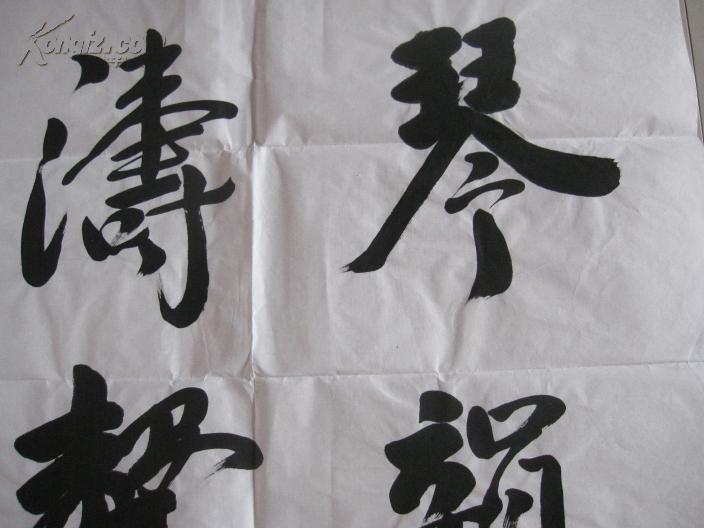 琴韻
濤聲
Kongfz.com